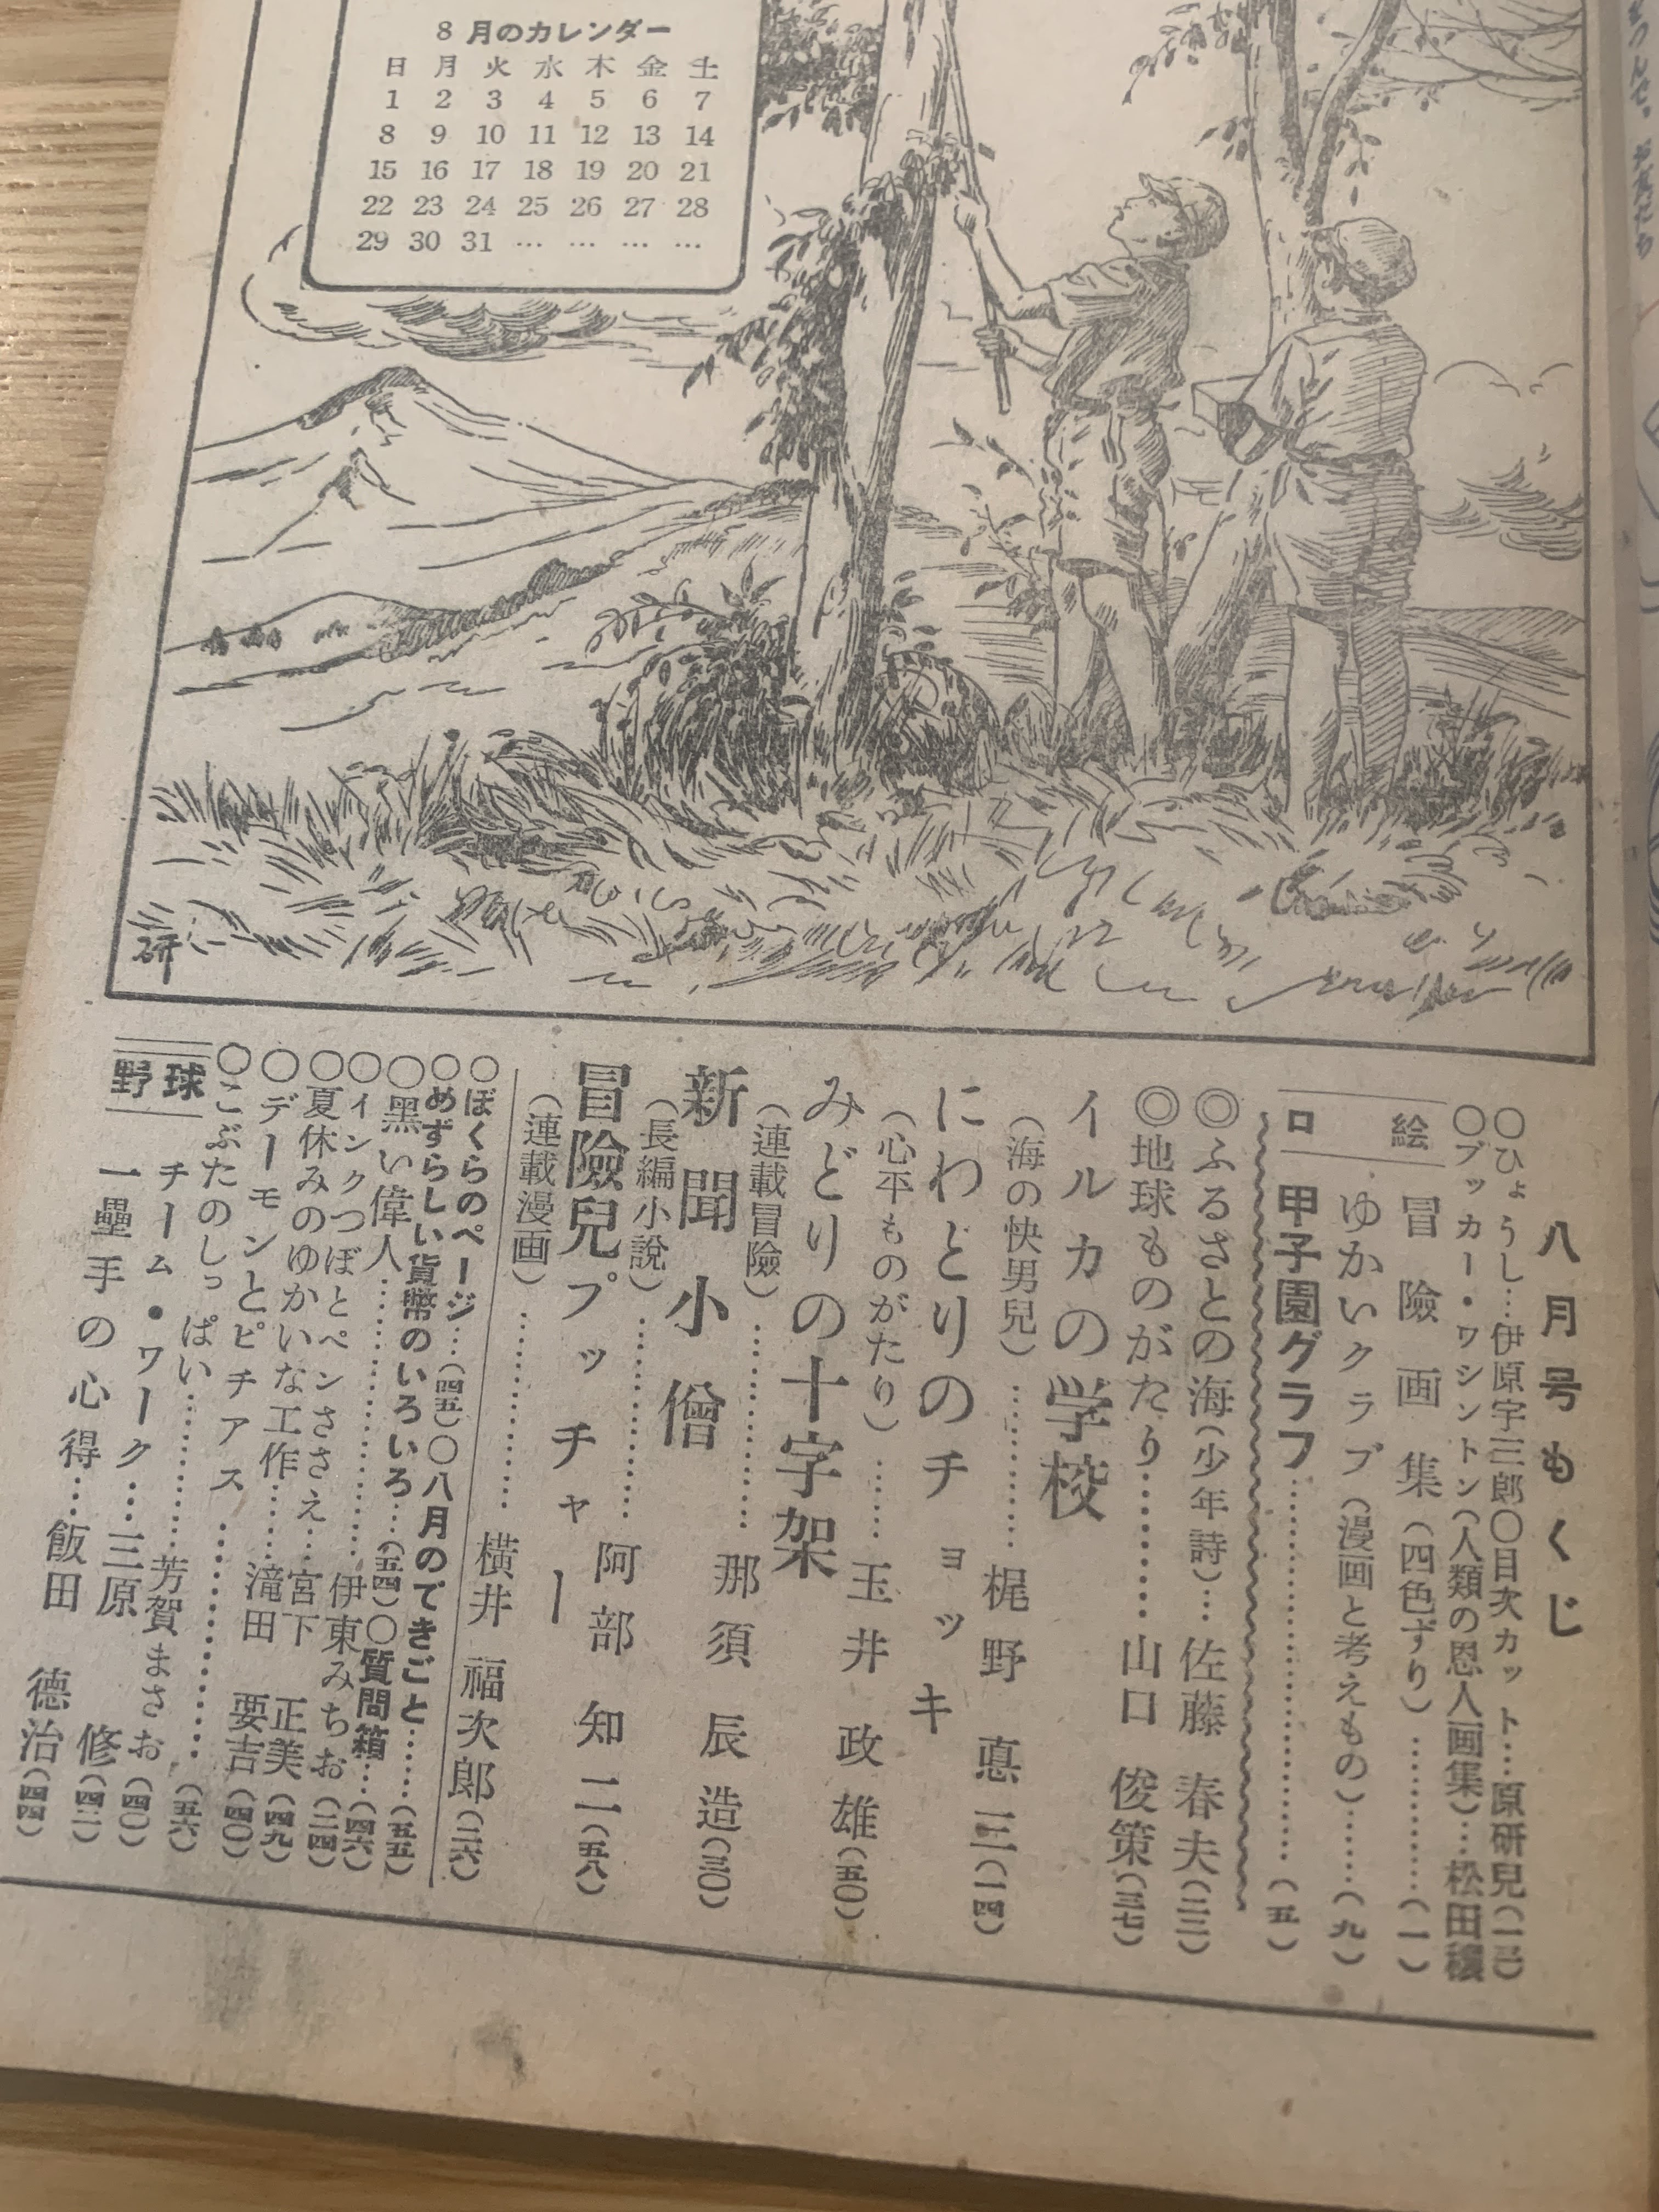 8月のカレンダー
日 月 火 水 木 金 土
1 2 3 4 5 6 7
8 9 10 11 12 13 14
15 16 17 18 19 20 21
22 23 24 25 26 27 28
29 30 31 … … … …
研
八月号もくじ
○ひょうし…伊原宇三郎○目次カット…原研兒(一三)
○ブッカー・ワシントン(人類の恩人画集)…松田穰
絵 冒險画集(四色ずり)…………(一)
ゆかいクラブ(漫画と考えもの)……(九)
口 甲子園グラフ……………………(五)
◎ふるさとの海(少年詩)…佐藤春夫(二二)
◎地球ものがたり…………山口俊策(三七)
イルカの学校
(海の快男兒)…………梶野悳三(一四)
にわとりのチョッキ
(心平ものがたり)……玉井政雄(五〇)
みどりの十字架
(連載冒險)……………那須辰造(三〇)
新聞小僧
(長編小說)……………阿部知二(五八)
冒險兒プッチャー
(連載漫画)……………横井福次郎(二六)
○ぼくらのページ…(四五)○八月のできごと……(五五)
○めずらしい貨幣のいろいろ…(五四)○質問箱…(四六)
○黒い偉人………………伊東みちお(二四)
○インクつぼとペンささえ…宮下正美(四九)
○夏休みのゆかいな工作……滝田要吉(四〇)
○デーモンとピチアス………………(五六)
○こぶたのしっぱい…………芳賀まさお(四〇)
野球 チーム・ワーク…三原修(四二)
一壘手の心得…飯田德治(四四)